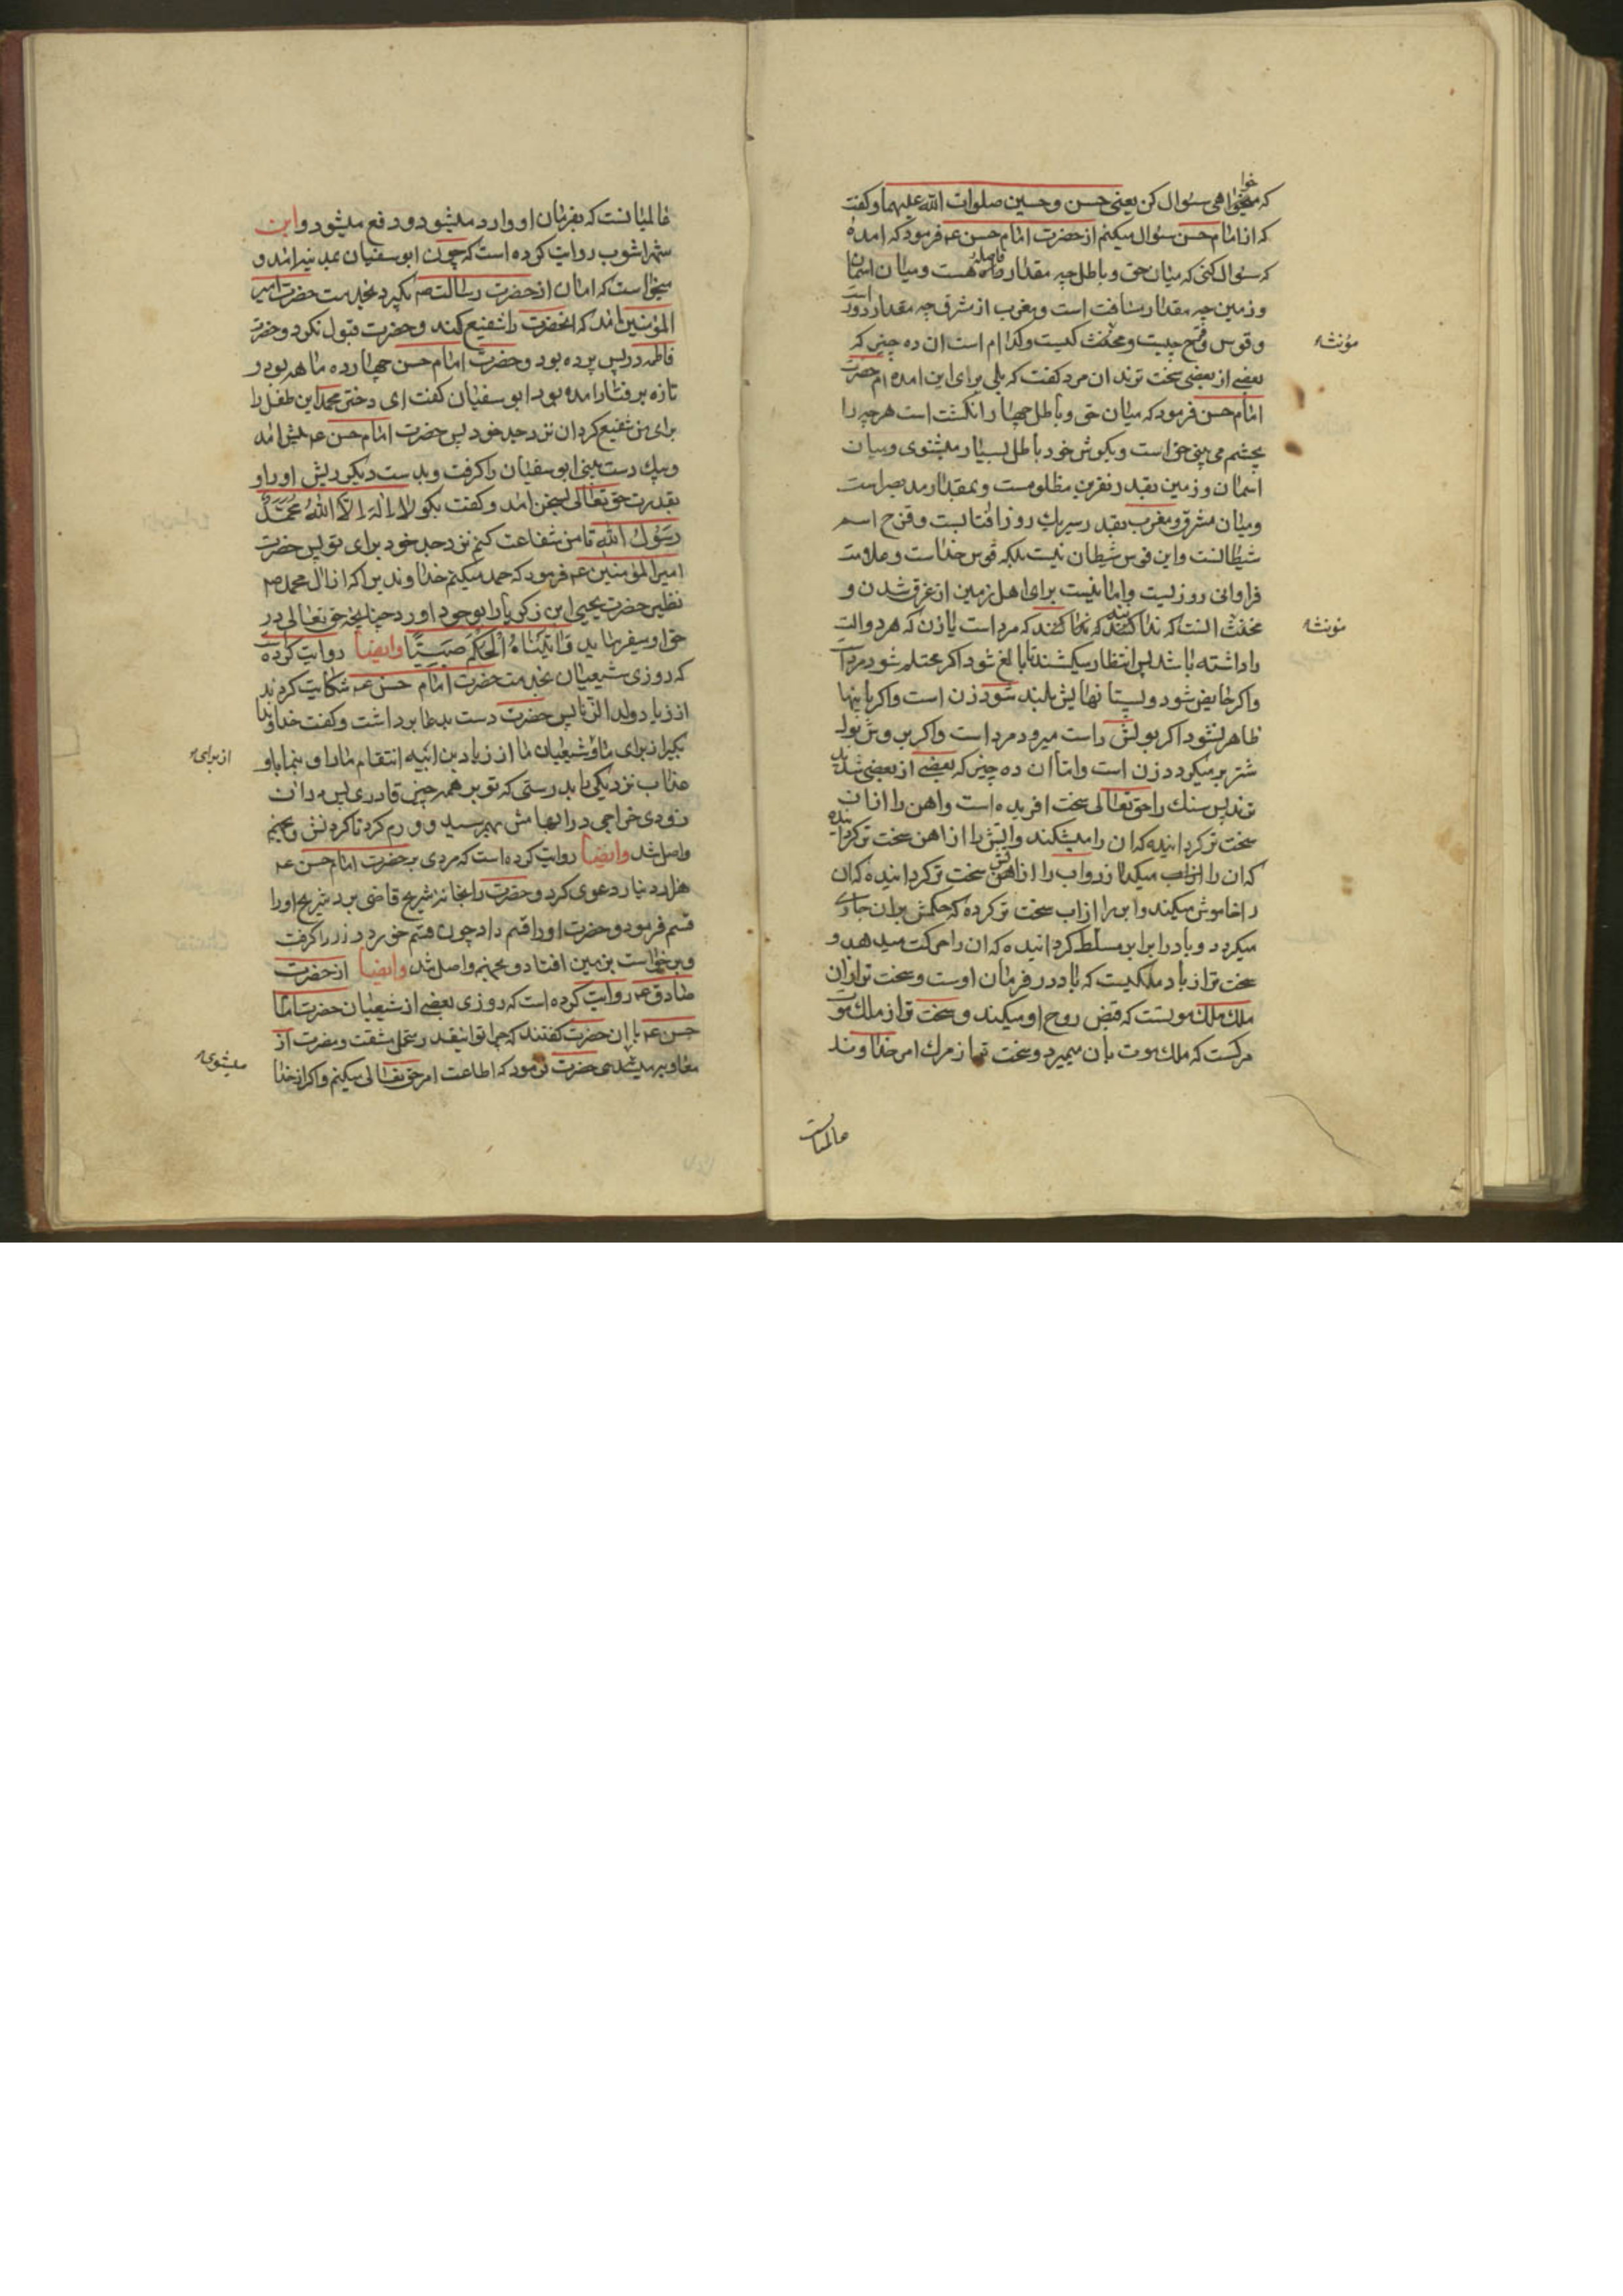 خوا
که میخواهی سئوال کن یعنی حسن و حسین صلوات الله علیهما و کفت
که از امام حسن سئوال میکنم از حضرت امام حسن عم فرمود که امدهٔ
که سئوال کنی که میان حق و باطل چه مقدار فاصله هست و میان اسمان
و زمین چه مقدار مسافت است و مغرب از مشرق چه مقدار دور است
و قوس قزح چیست و مخنث کیست و کدام است ان ده چیز که
مؤنثه
بعضی از بعضی سخت ترند ان مرد کفت که بلی برای این امده ام حضرت
امام حسن فرمود که میان حق و باطل چهار انکشت است هر چه را
بچشم می بینی حق است و بکوش خود باطل بسیار میشنوی و میان
اسمان و زمین بقدر نفرین مظلومست و بمقدار مد بصر است
و میان مشرق و مغرب بقدر سیر یک روز افتابست و قزح اسم
شیطانست و این قوس شیطان نیست بلکه قوس خداست و علامت
فراوانی روزیست و امانیست برای اهل زمین از غرق شدن و
مخنث انست که ندانند که مرد است یا زن که هر دو الت
مؤنثه
را داشته باشد پس انتظار میکشند تا بالغ شود اکر محتلم شود مرد است
و اکر حایض شود و پستانهایش بلند شود زن است و اکر باینها
ظاهر نشود اکر بولش راست میرود مرد است و اکر بروش بول
شتر بر میکردد زن است و اما ان ده چیز که بعضی از بعضی شدید
ترند پس سنک را حق تعالی سخت افریده است و اهن را از ان
سخت تر کردانیده که ان را میشکند و اتش را از اهن سخت تر کردانیده
که ان را میکدازد و اب را از اتش سخت تر کردانیده که ان
را خاموش میکند و ابر را از اب سخت تر کرده که حکمش بر ان جاری
میکردد و باد را بر ابر مسلط کردانیده که ان را حرکت میدهد و
سخت تر از باد ملکیست که باد در فرمان اوست و سخت تر از ان
ملک ملک موتست که قبض روح او میکند و سخت تر از ملک موت
مرکست که ملک موت بان میمیرد و سخت تر از مرک امر خداوند
عالمیانست
عالمیانست که بفرمان او وارد میشود و دفع میشود و ابن
شهراشوب روایت کرده است که چون ابو سفیان بمدینه امد و
میخواست که امان از حضرت رسالت ص بکیرد بخدمت حضرت امیر
المؤمنین امد که انحضرت را شفیع کند و حضرت قبول نکرد و حضرت
فاطمه در پس پرده بود و حضرت امام حسن چهارده ماهه بود و
تازه برفتار امده بود ابو سفیان کفت ای دختر محمد این طفل را
برای من شفیع کردان نزد جد خود پس حضرت امام حسن عم پیش امد
و بیک دست بینی ابو سفیان را کرفت و بدست دیکر ریش او را و
بقدرت حق تعالی بسخن امد و کفت بکو لا اله الا الله محمد
رسول الله تا من شفاعت کنم نزد جد خود برای تو پس حضرت
امیر المؤمنین عم فرمود که حمد میکنم خداوندیرا که از ال محمد ص
نظیر حضرت یحیی ابن زکریا را بوجود اورد چنانچه حق تعالی در
حق او میفرماید وَاٰتَیْنَاهُ الْحُکْمَ صَبِیًّا وایضا روایت کرده است
که روزی شیعیان بخدمت حضرت امام حسن عم شکایت کردند
از زیاد ولد الزنا پس حضرت دست بدعا برداشت و کفت خداوندا
بکیر از برای ما و شیعیان ما از زیاد بن ابیه انتقام ما را و بنما باو
از برای
عذاب نزدیکی بدرستی که تو بر همه چیز قادری پس در ان
زودی خراجی در ابهامش بهم رسید و ورم کرد تا کردنش و بجهنم
واصل شد وایضا روایت کرده است که مردی بر حضرت امام حسن عم
هزار دینار دعوی کرد و حضرت را بخانه شریح قاضی برد شریح او را
قسم فرمود و حضرت او را قسم داد چون قسم خورد و زر را کرفت
و برخواست بر زمین افتاد و بجهنم واصل شد وایضا از حضرت
صادق عم روایت کرده است که روزی بعضی از شیعیان حضرت امام
حسن عم با ان حضرت کفتند که چرا توانیقدر تحمل مشقت و مضرت از
معاویه میشوی حضرت فرمود که اطاعت امر حق تعالی میکنم و اکر از خدا
میشوی